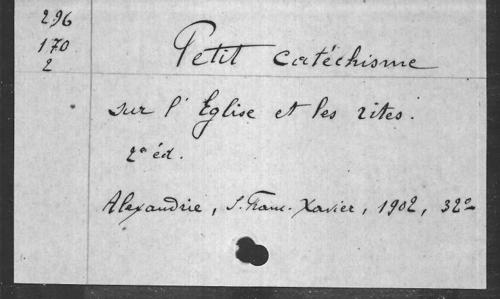 296
170
2
Petit catéchisme
sur l'Eglise et les rites.
2e éd.
Alexandrie, S. Franc. Xavier, 1902, 32°